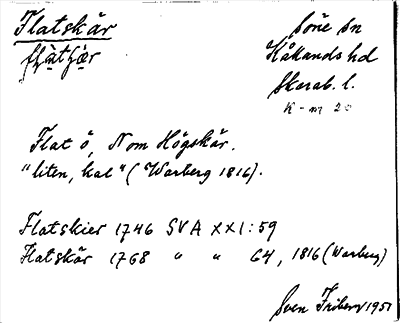 Flatskär Söne sn
Kållands hd
Skarab. l.
K-m 20
Flat ö, N om Högskär.
"liten, kal" (Warberg 1816).
Flatskier 1746 SVA XXI:59
Flatskär 1768 " " 64, 1816 (Warberg)
Sven Friberg 1951